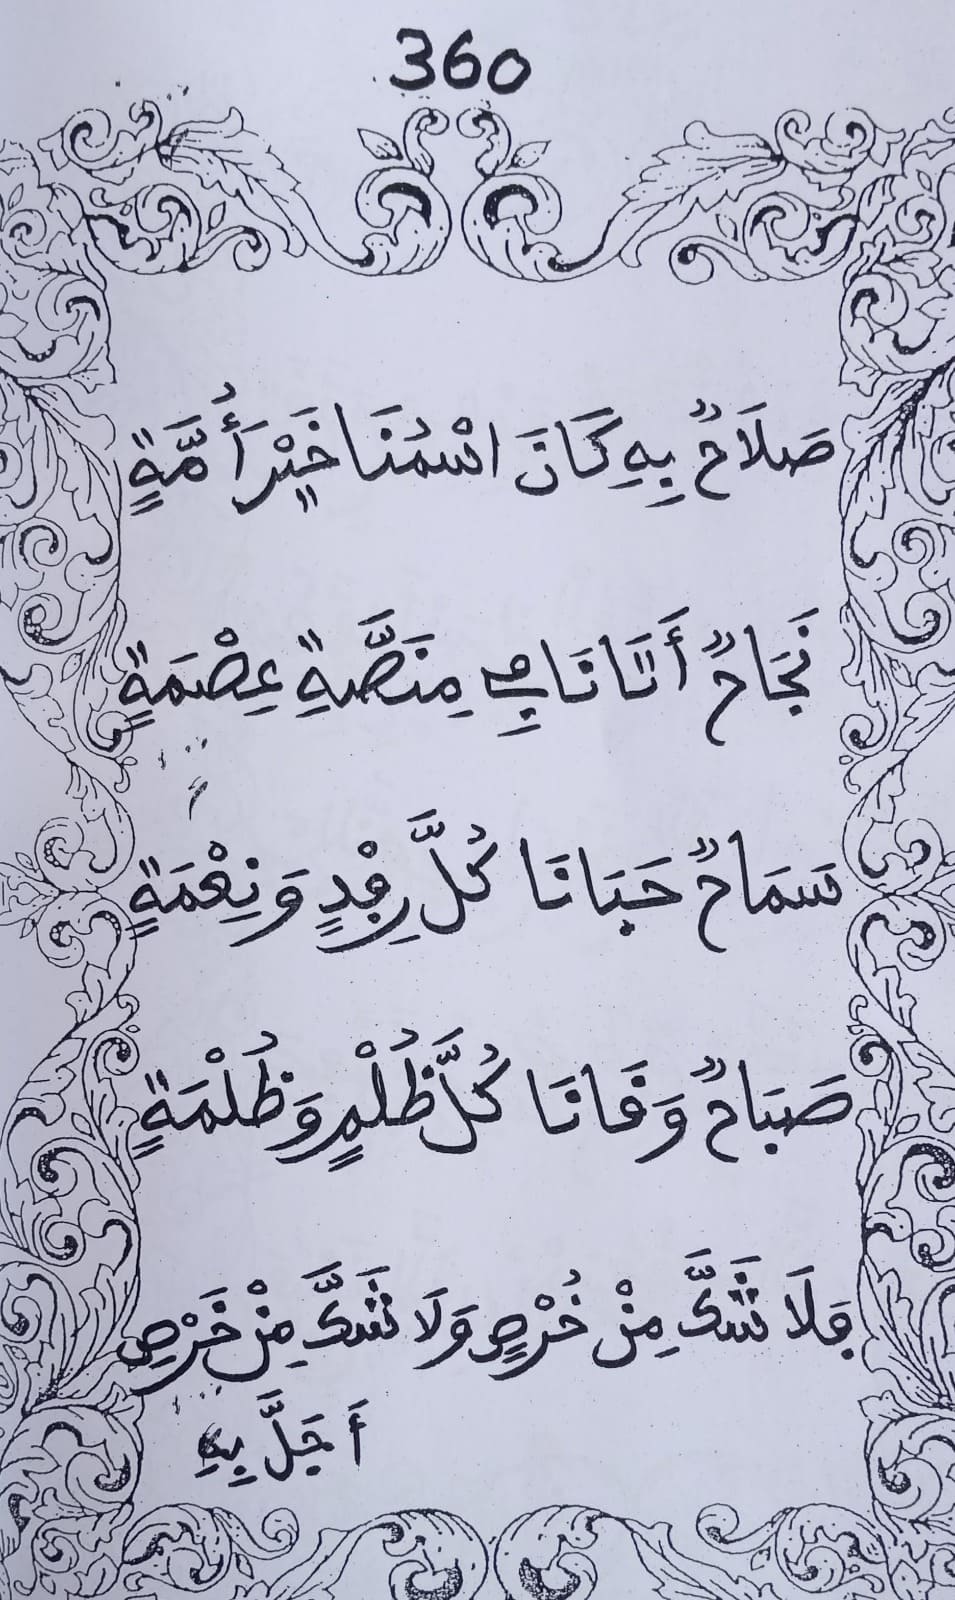 360
صَلَاحٌ بِهِ كَانَ اسْمُنَا خَيْرَ أُمَّةٍ
نَجَاحٌ أَتَانَا فِي مِنَصَّةِ عِصْمَةٍ
سَمَاحٌ حَبَانَا كُلَّ رِفْدٍ وَنِعْمَةٍ
صَبَاحٌ وَقَانَا كُلَّ ظُلْمٍ وَظُلْمَةٍ
فَلَا شَكَّ مِنْ خُرْصٍ وَلَا شَكَّ مِنْ خَرْصِ
أَجَلَّ بِهِ